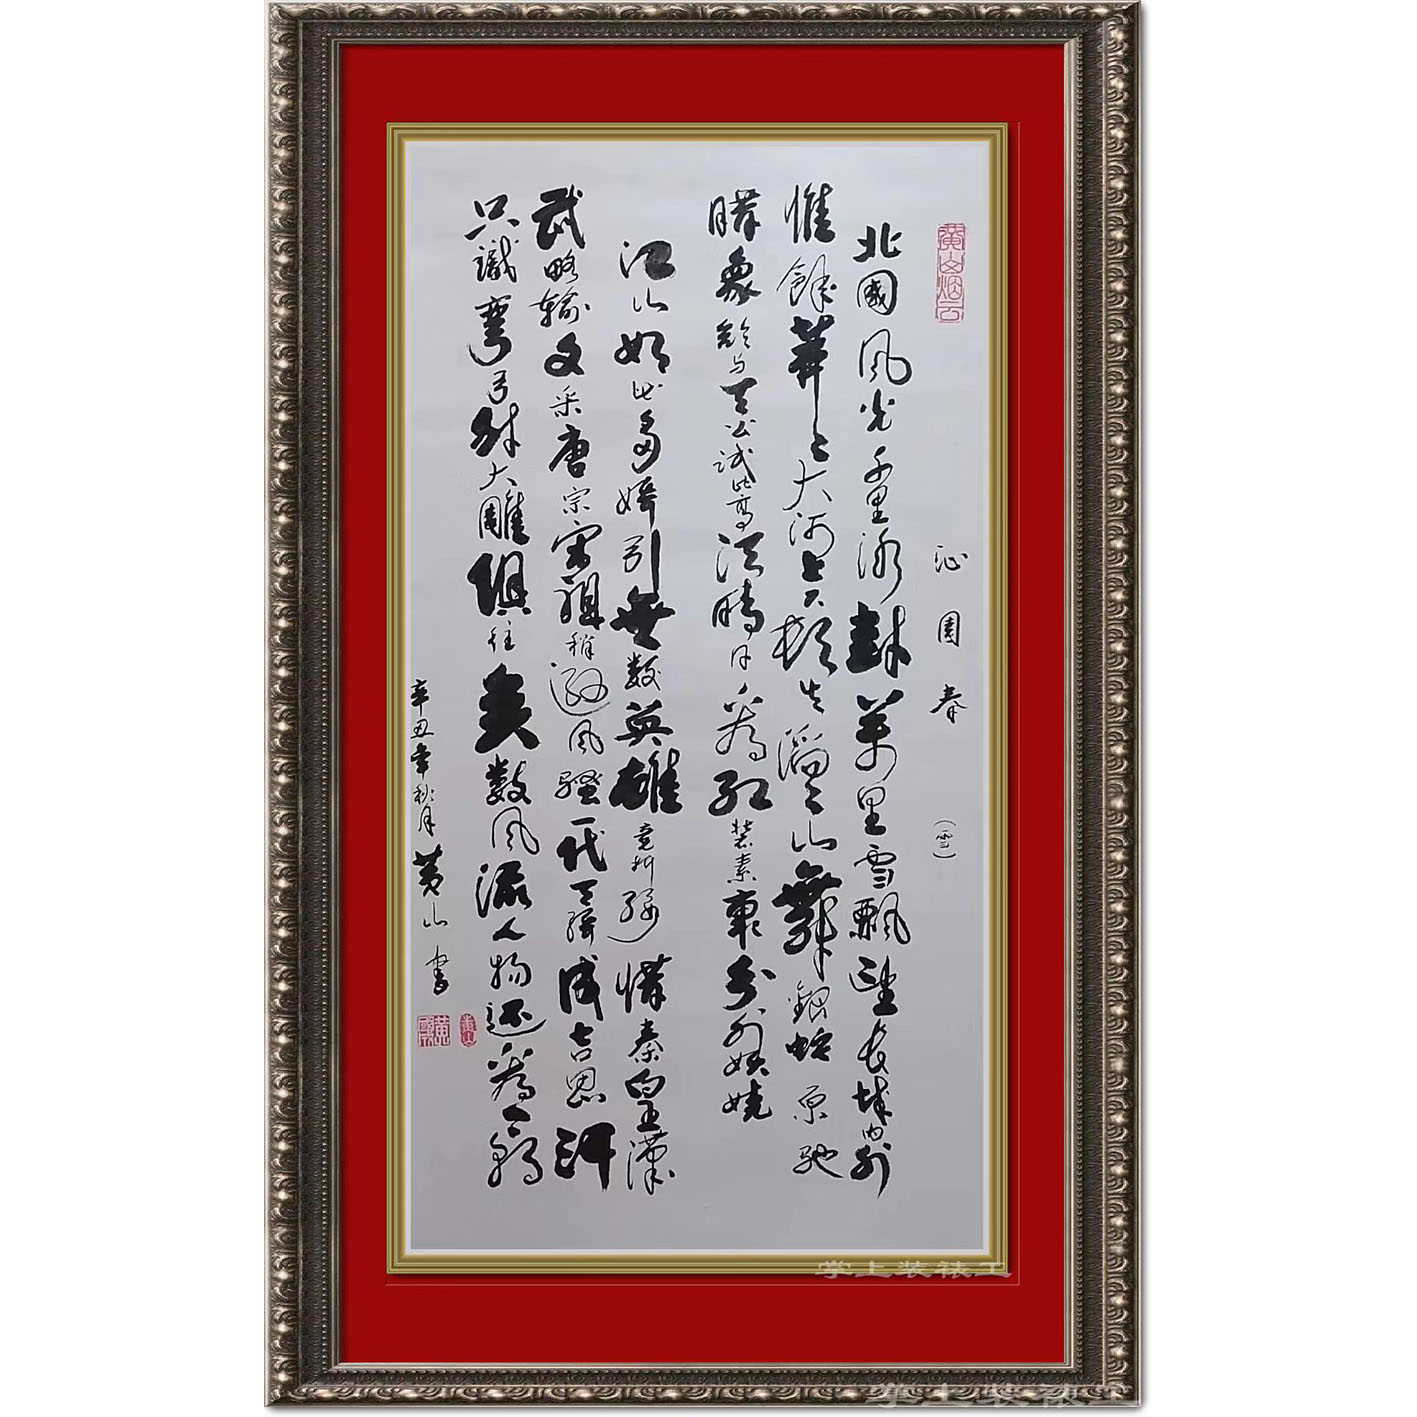 黄山烟云
沁園春（雪）
北國風光千里冰封萬里雪飄望長城内外
惟餘莽々大河上下頓失滔々山舞銀蛇原馳
臘象欲与天公試比高須晴日看紅裝素裹分外妖嬈
江山如此多嬌引無数英雄竞折腰惜秦皇漢
武略輸文采唐宗宋祖稍遜風騷一代天驕成吉思汗
只識彎弓射大雕俱往矣數風流人物还看今朝
辛丑年秋月黄山書
黄山
掌上装裱工
掌上装裱工